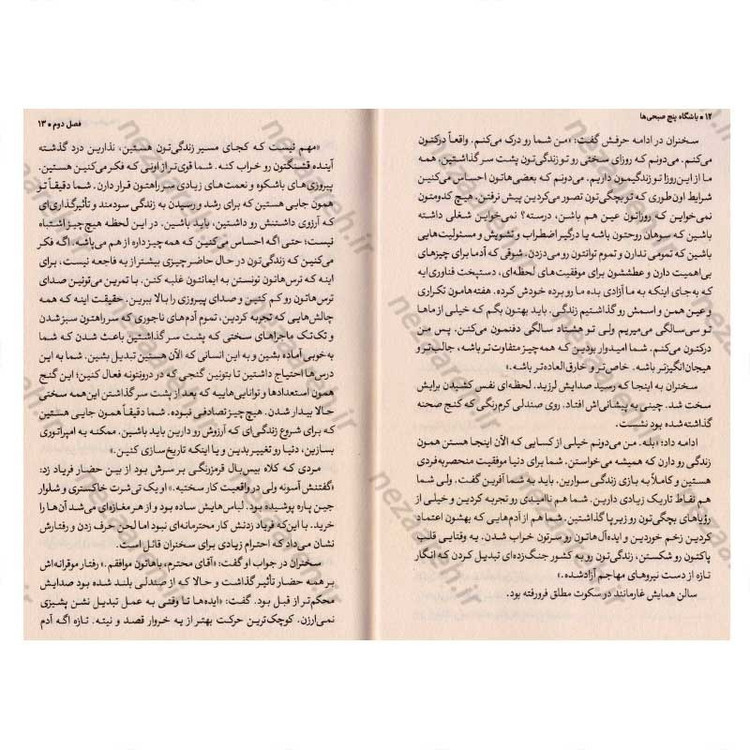 ۱۲ • باشگاه پنج صبحی‌ها
سخنران در ادامه حرفش گفت: «من شما رو درک می‌کنم. واقعاً درکتون
می‌کنم. می‌دونم که روزای سختی رو تو زندگی‌تون پشت سر گذاشتین، همه
ما از این روزا تو زندگیمون داریم. می‌دونم که بعضی‌هاتون احساس می‌کنین
شرایط اون‌طوری که تو بچگی‌تون تصور می‌کردین پیش نرفتن. هیچ کدومتون
نمی‌خواین که روزاتون عین هم باشن، درسته؟ نمی‌خواین شغلی داشته
باشین که سوهان روحتون باشه یا درگیر اضطراب و تشویش و مسئولیت‌هایی
باشین که تمومی ندارن و تموم توانتون رو می‌دزدن. شوقی که آدما برای چیزهای
بی‌اهمیت دارن و عطششون برای موفقیت‌های لحظه‌ای، دستپخت فناوری‌ایه
که به‌جای اینکه به ما آزادی بده ما رو برده خودش کرده. هفته‌هامون تکراری
و عین همن و اسمش رو گذاشتیم زندگی. باید بهتون بگم که خیلی از ماها
تو سی‌سالگی می‌میریم ولی تو هشتاد سالگی دفنمون می‌کنن. پس من
درکتون می‌کنم. شما امیدوار بودین که همه‌چیز متفاوت‌تر باشه، جالب‌تر و
هیجان‌انگیزتر باشه. خاص‌تر و خارق‌العاده‌تر باشه.»
سخنران به اینجا که رسید صدایش لرزید. لحظه‌ای نفس کشیدن برایش
سخت شد. چینی به پیشانی‌اش افتاد. روی صندلی کرم‌رنگی که کنج صحنه
گذاشته شده بود نشست.
ادامه داد: «بله. من می‌دونم خیلی از کسایی که الآن اینجا هستن همون
زندگی رو دارن که همیشه می‌خواستن. شما برای دنیا موفقیت منحصربه‌فردی
هستین و کاملاً به بازی زندگی سوارین. باید به شما آفرین گفت. ولی شما
هم نقاط تاریک زیادی دارین. شما هم ناامیدی رو تجربه کردین و خیلی از
رؤیاهای بچگی‌تون رو زیر پا گذاشتین. شما هم از آدم‌هایی که بهشون اعتماد
کردین زخم خوردین و ایده‌آل‌هاتون رو سرتون خراب شدن. یه وقتایی قلب
پاکتون رو شکستن، زندگی‌تون رو یه کشور جنگ‌زده‌ای تبدیل کردن که انگار
تازه از دست نیروهای مهاجم آزاد شده.»
سالن همایش غارمانند در سکوت مطلق فرورفته بود.
فصل دوم • ۱۳
«مهم نیست که کجای مسیر زندگی‌تون هستین، نذارین درد گذشته
آینده قشنگتون رو خراب کنه. شما قوی‌تر از اونی که فکر می‌کنین هستین.
پیروزی‌های باشکوه و نعمت‌های زیادی سر راهتون قرار دارن. شما دقیقاً تو
همون جایی هستین که برای رشد و رسیدن به زندگی سودمند و تأثیرگذاری‌ای
که آرزوی داشتنش رو داشتین، باید باشین. در این لحظه هیچ‌چیز اشتباه
نیست؛ حتی اگه احساس می‌کنین که همه‌چیز داره از هم می‌پاشه. اگه فکر
می‌کنین که زندگی‌تون در حال حاضر چیزی بیشتر از یه فاجعه نیست، برای
اینه که ترس‌هاتون تونستن به ایمانتون غلبه کنن. با تمرین می‌تونین صدای
ترس‌هاتون رو کم کنین و صدای پیروزی رو بالا ببرین. حقیقت اینه که همه
چالش‌هایی که تجربه کردین، تموم آدم‌های ناجوری که سر راهتون سبز شدن
و تک‌تک ماجراهای سختی که پشت سر گذاشتین باعث شدن که شما
به خوبی آماده بشین و به این انسانی که الآن هستین تبدیل بشین. شما به این
درس‌ها احتیاج داشتین تا بتونین گنجی که در درونتونه فعال کنین؛ این گنج
همون استعدادها و توانایی‌هاییه که بعد از پشت سر گذاشتن این همه سختی
حالا بیدار شدن. هیچ‌چیز تصادفی نبوده. شما دقیقاً همون جایی هستین
که برای شروع زندگی‌ای که آرزوش رو دارین باید باشین. ممکنه یه امپراتوری
بسازین، دنیا رو تغییر بدین و یا اینکه تاریخ‌سازی کنین.»
مردی که کلاه بیس‌بال قرمزرنگی بر سرش بود از بین حضار فریاد زد:
«گفتنش آسونه ولی در واقعیت کار سختیه.» او یک تی‌شرت خاکستری و شلوار
جین پاره پوشیده بود. لباس‌هایش ساده بود و از هر مغازه‌ای می‌شد آن‌ها را
خرید. با این‌که فریاد زدنش کار محترمانه‌ای نبود اما لحن حرف زدن و رفتارش
نشان می‌داد که احترام زیادی برای سخنران قائل است.
سخنران در جواب او گفت: «آقای محترم، باهاتون موافقم.» رفتار موقرانه‌اش
بر همه حضار تأثیر گذاشت و حالا که از صندلی بلند شده بود صدایش
محکم‌تر از قبل بود. گفت: «ایده‌ها تا وقتی به عمل تبدیل نشن پشیزی
نمی‌ارزن. کوچک‌ترین حرکت بهتر از یه خروار قصد و نیته. تازه اگه آدم
nezaareh.ir